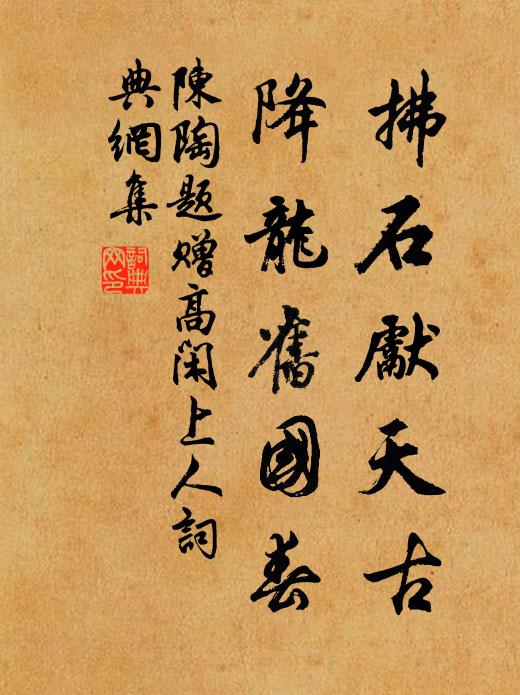 拂石獻天古
降龍舊國春
陳陶題贈高閑上人詞
典網集
詞典
网印